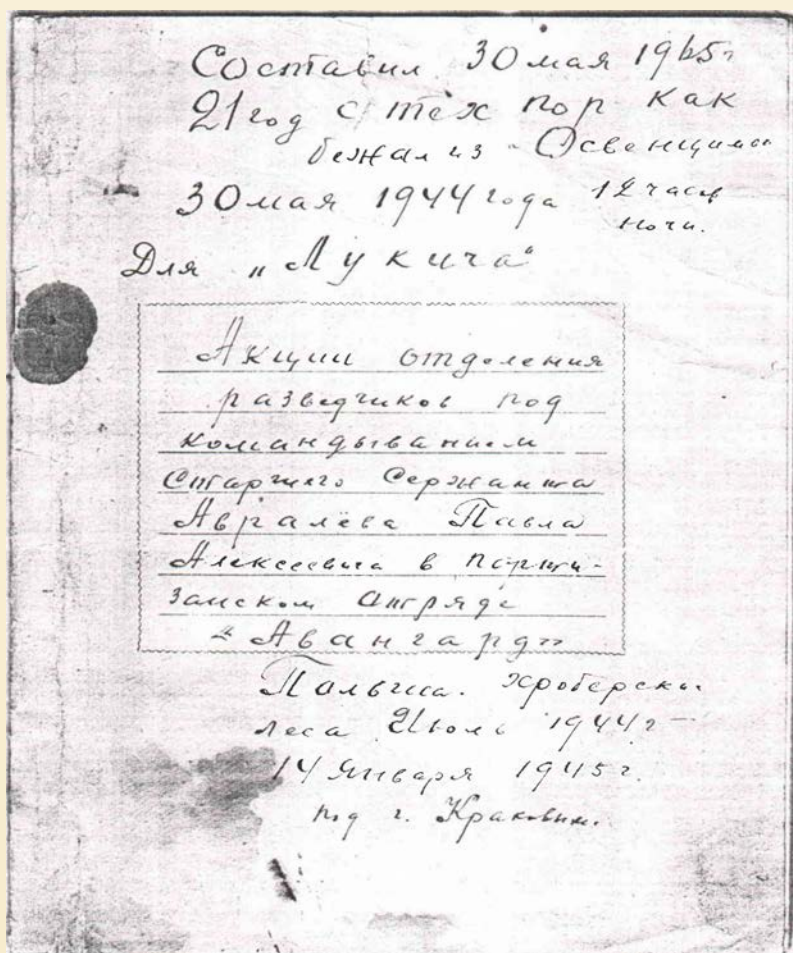 Составил 30 мая 1965г
21 год с тех пор как
бежал из Освенцима
30 мая 1944 года 12 часов
ночи.
Для „Лукича“
Акции отделения
разведчиков под
командыванием
Старшего Сержанта
Авралёва Павла
Алексеевича в парти-
занском отряде
"Авангард"
Польша. Хроберски
леса Июль 1944г —
14 Января 1945г.
под г. Краковым.